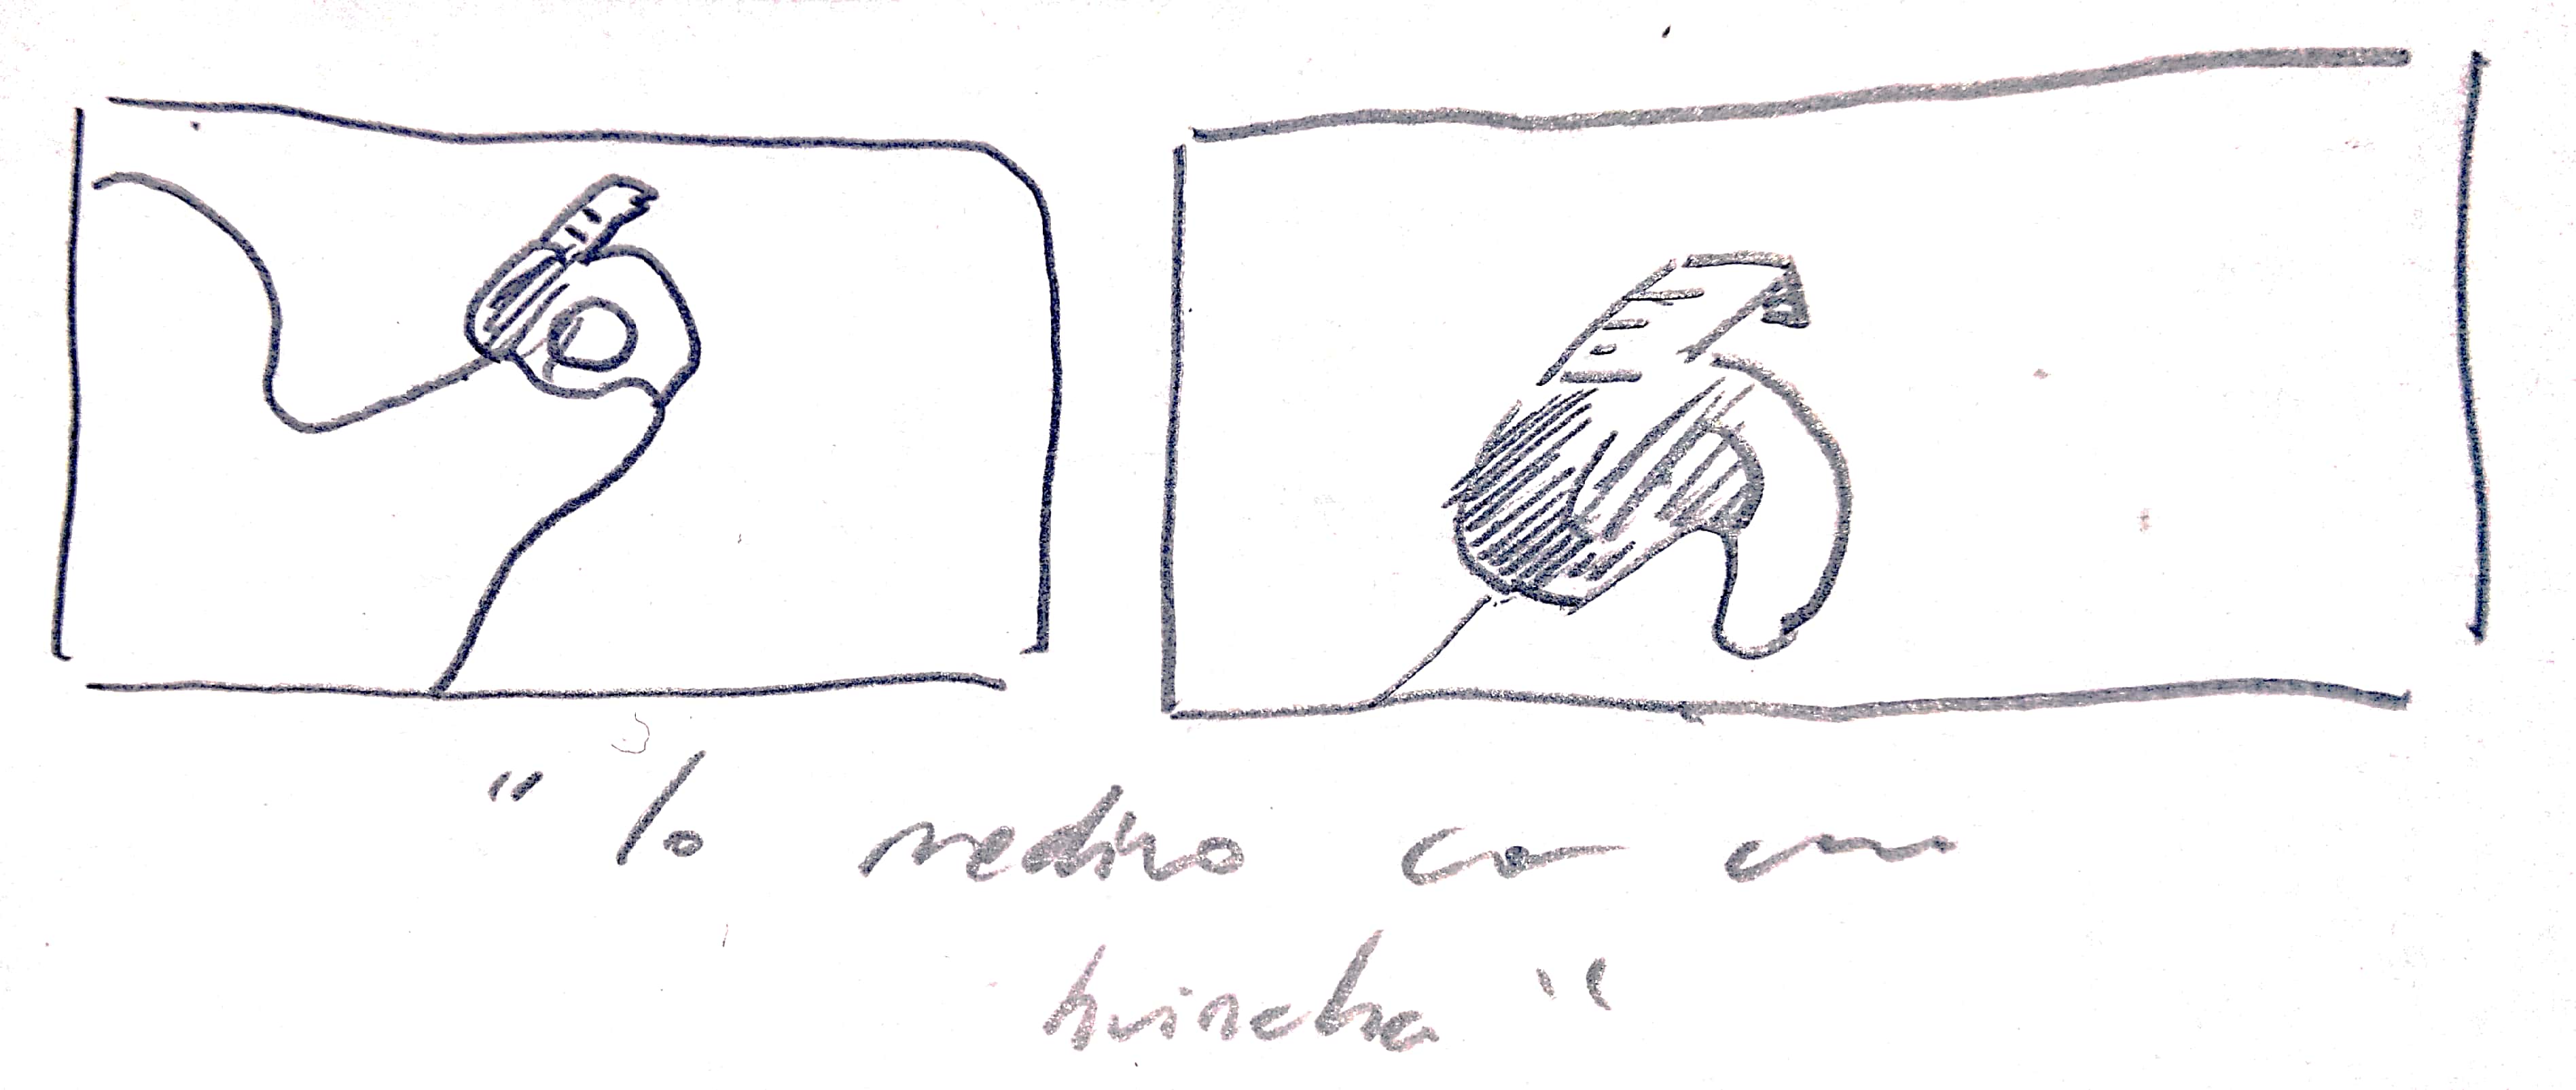 "lo mediro con una
huincha"